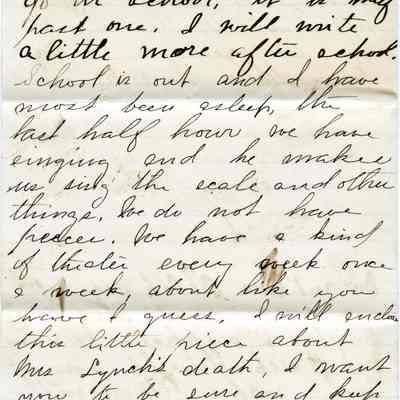 go in school, it is half
past one. I will write
a little more after school.
School is out and I have
most been asleep, the
last half hour we have
singing and he makes
us sing the scale and other
things. We do not have
peecee. We have a kind
of theater every week once
a week, about like you
have I guess. I will enclose
this little piece about
Mrs Lynch's death, I want
you to be sure and keep